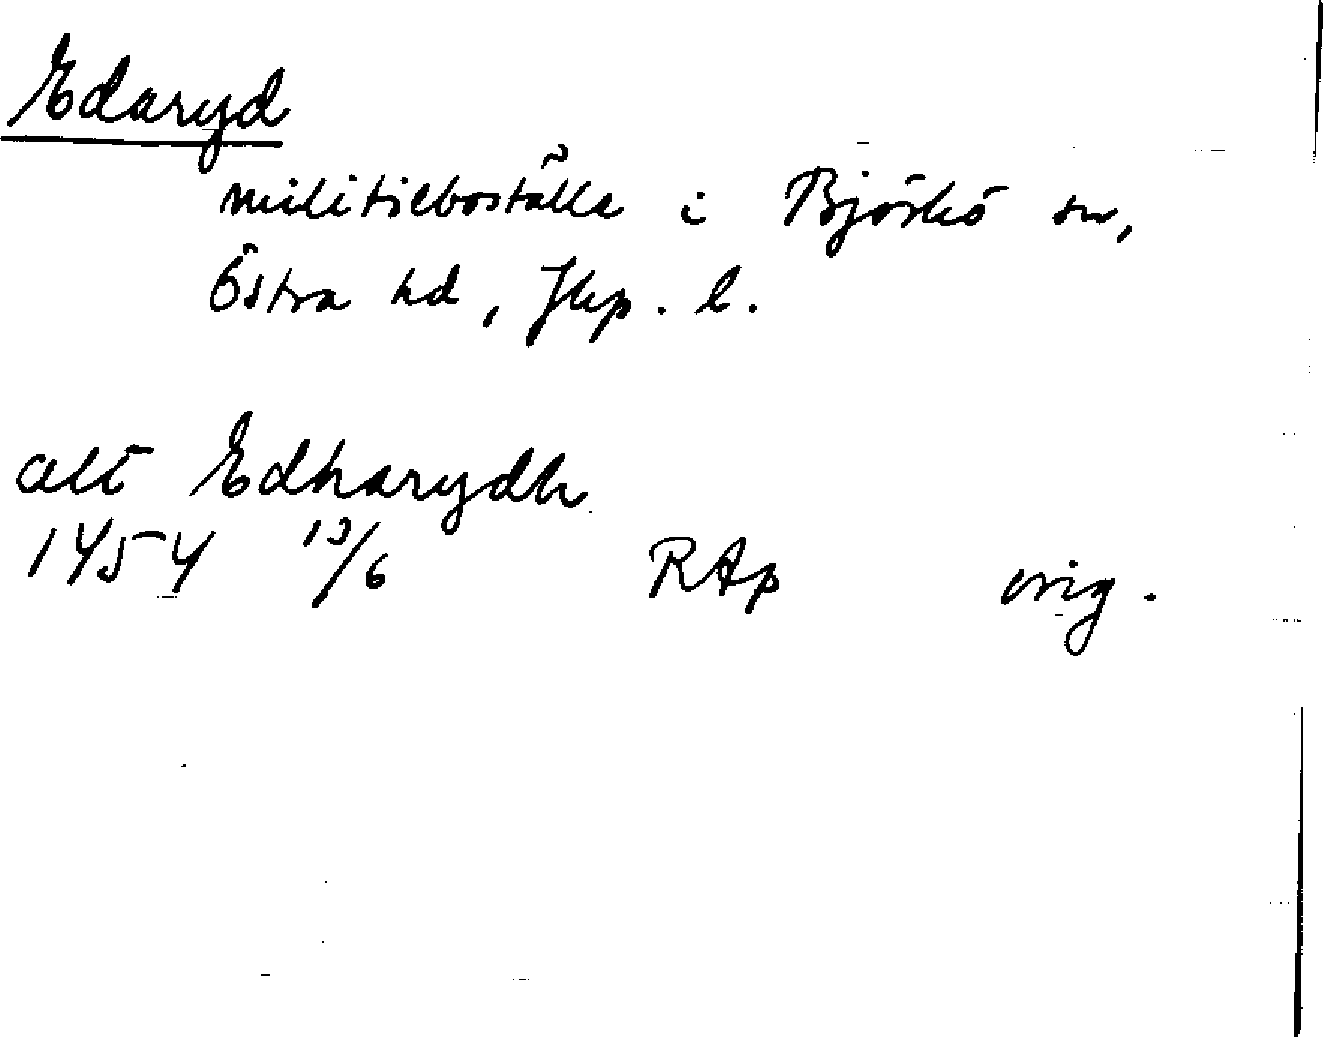 Edaryd
militieboställe i Björkö sn,
Östra hd, Jkp. l.
alt Edharydh
1454 13/6 RAp orig.